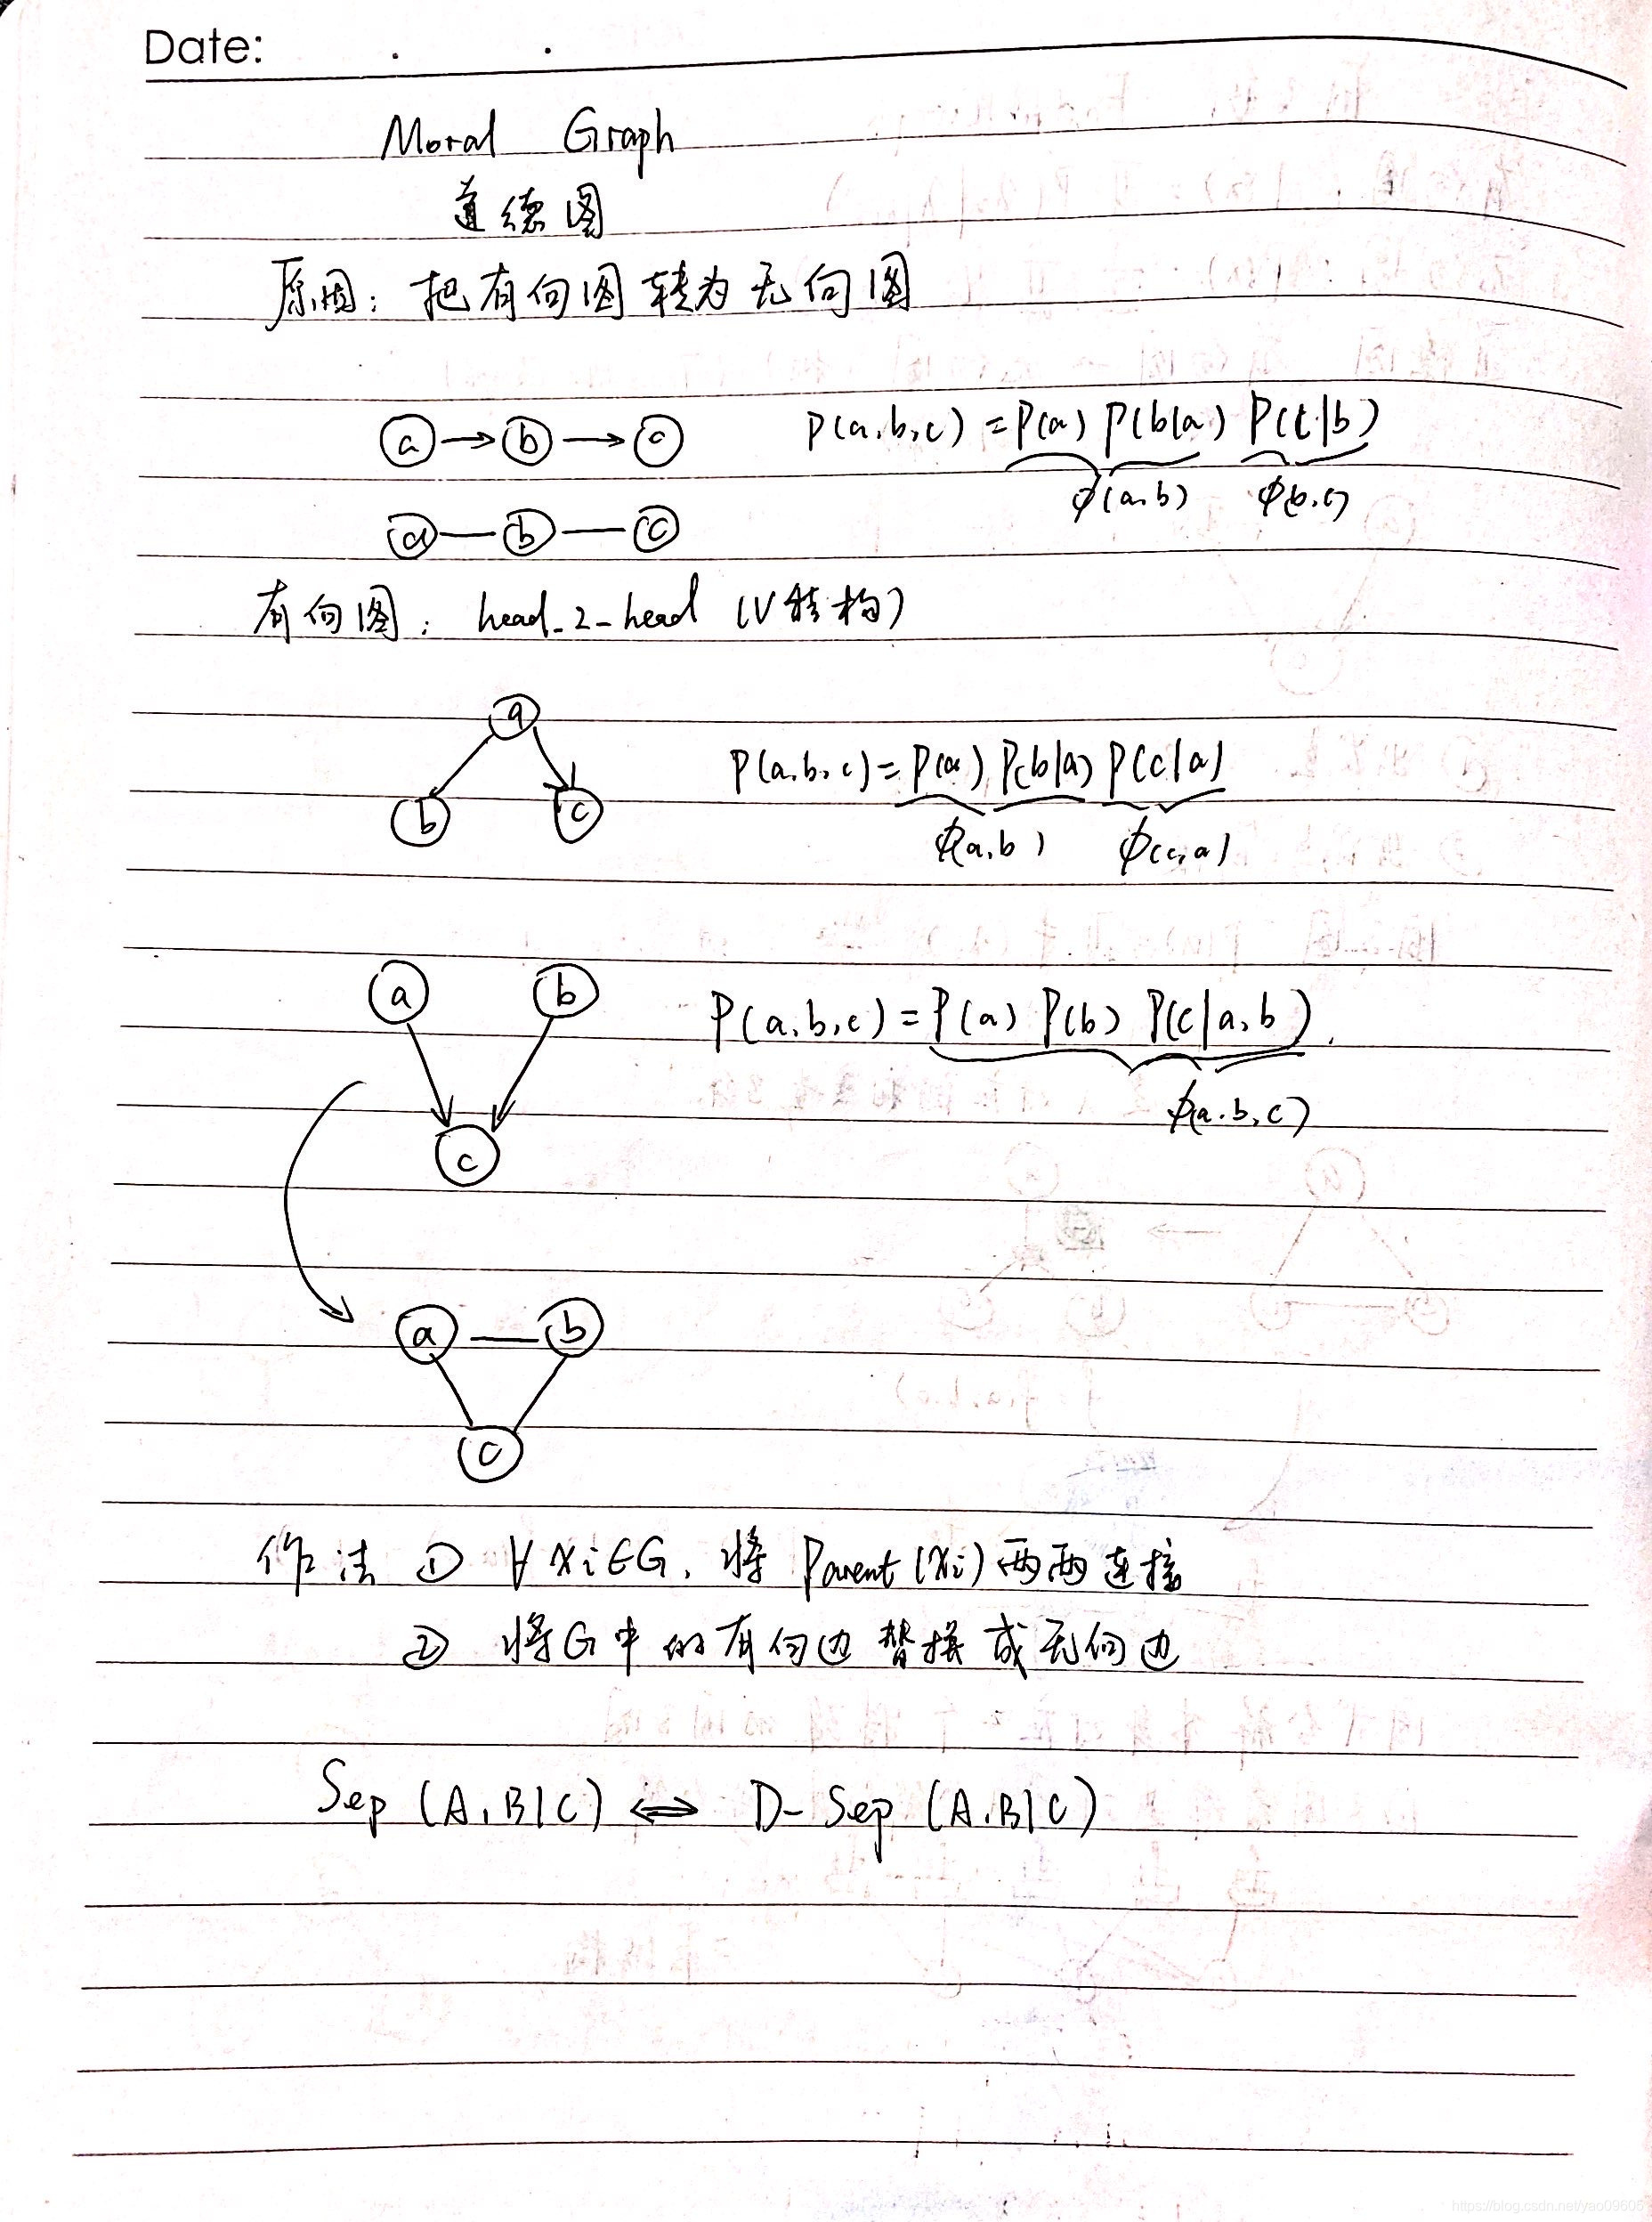 Date:
Moral Graph
道德图
原因: 把有向图转为无向图
a → b → c P(a,b,c) = P(a) P(b|a) P(c|b)
ϕ(a,b) ϕ(b,c)
a — b — c
有向图: head-2-head (V结构)
a
P(a,b,c) = P(a) P(b|a) P(c|a)
b c
ϕ(a,b) ϕ(c,a)
a b P(a,b,c) = P(a) P(b) P(c|a,b).
ϕ(a,b,c)
c
a — b
c
作法 ① ∀xi∈G, 将 Parent(xi) 两两连接
② 将G中的有向边替换成无向边
Sep (A,B|C) ⇔ D-Sep (A,B|C)